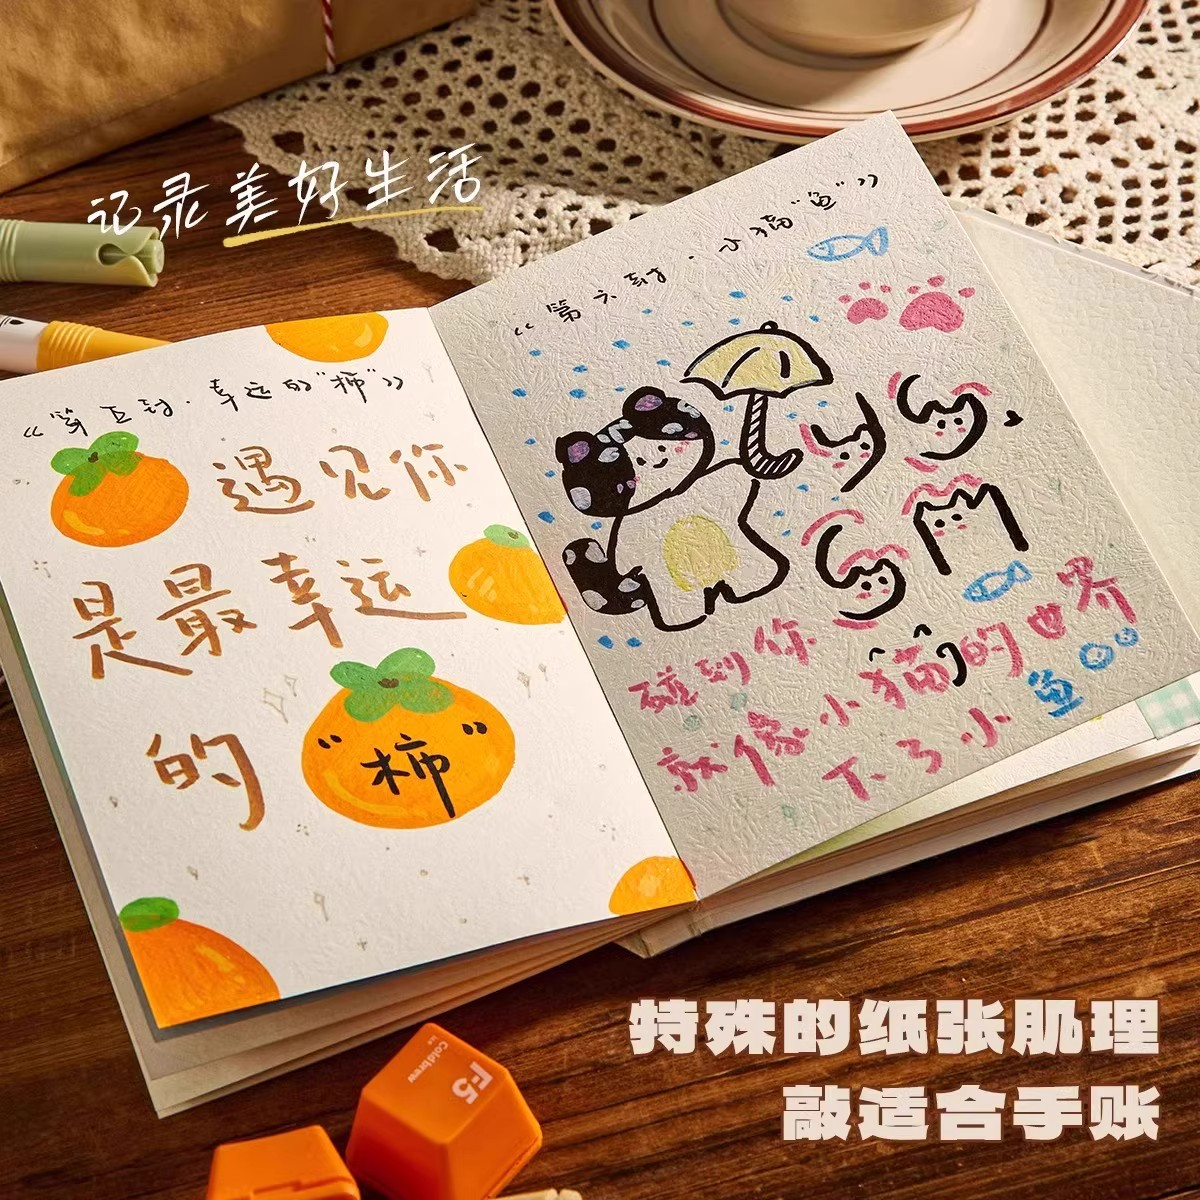 记录美好生活
《第五封·幸运的“柿”》
遇见你
是最幸运
的“柿”
《第六封·小猫“鱼”》
碰到你
就像小猫的世界
下了小鱼
特殊的纸张肌理
敲适合手账
F5
coldbrew